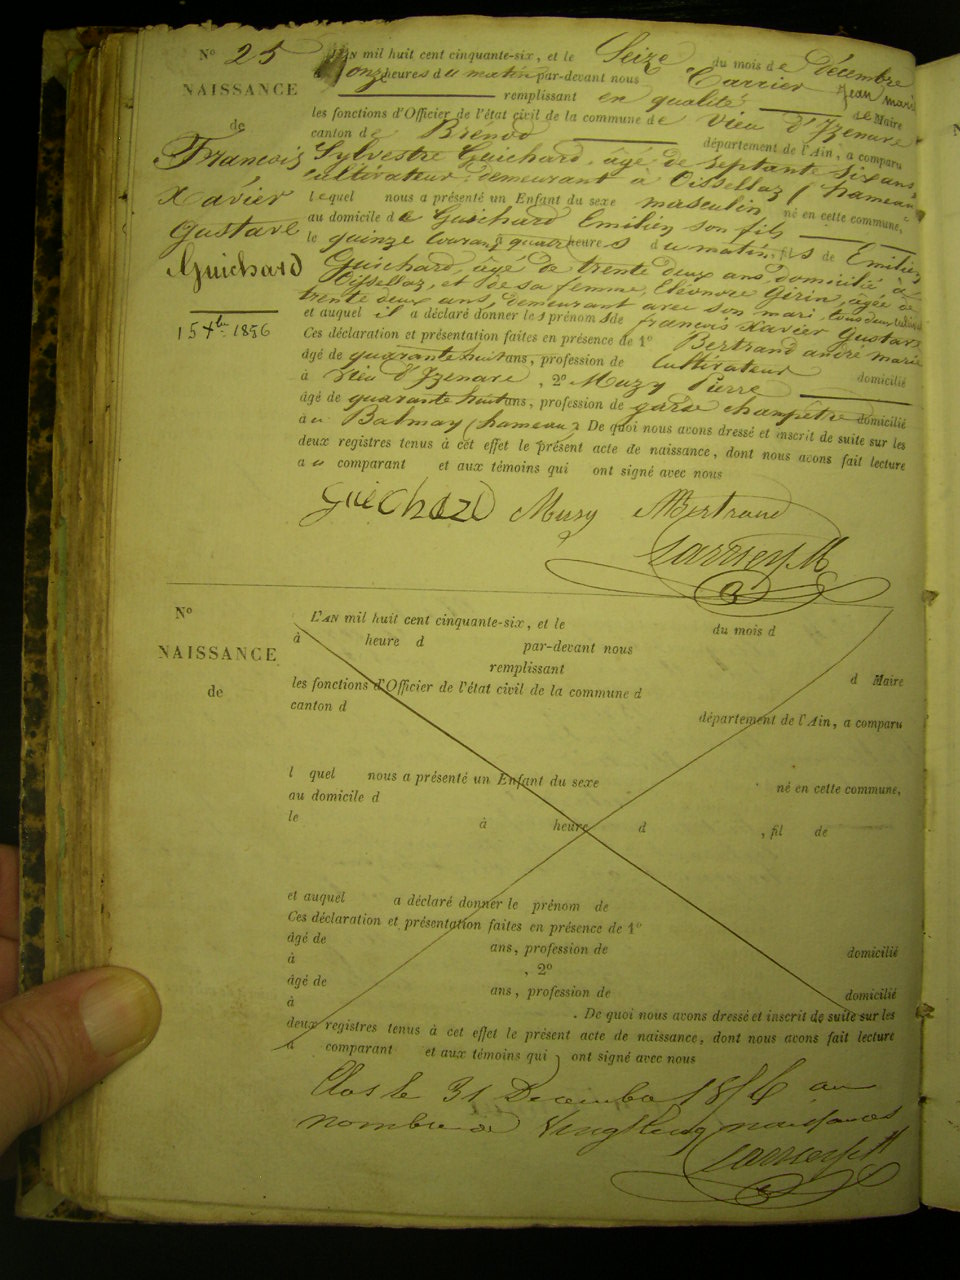 N° 25
NAISSANCE
de
François
Xavier
Gustave
Guichard
15 Xbre 1856
L'AN mil huit cent cinquante-six, et le Seize du mois de Décembre
à onze heures du matin par-devant nous Carrier Jean Marie
remplissant en qualité de Maire
les fonctions d'Officier de l'état civil de la commune de Vieu d'Izenave
canton de Brénod département de l'Ain, a comparu
Sylvestre Guichard, âgé de septante six ans,
cultivateur, demeurant à Oisselaz (hameau)
lequel nous a présenté un Enfant du sexe masculin né en cette commune,
au domicile de Guichard Emilien son fils
le quinze courant à quatre heures du matin, fils de Emilien
Guichard, âgé de trente deux ans, domicilié à
Oisselaz, et de sa femme, Eléonore Girin, âgée de
trente deux ans, demeurant avec son mari, tous deux
et auquel il a déclaré donner les prénoms de François Xavier Gustave
Ces déclaration et présentation faites en présence de 1° Bertrand andré marie
âgé de quarante huit ans, profession de Cultivateur domicilié
à Vieu d'Izenave, 2° Muzy Pierre
âgé de quarante huit ans, profession de garde champêtre domicilié
à u Balmay (hameau). De quoi nous avons dressé et inscrit de suite sur les
deux registres tenus à cet effet le présent acte de naissance, dont nous avons fait lecture
au comparant et aux témoins qui ont signé avec nous
Guichard Muzy Bertrand
Carrier J M
N°
NAISSANCE
de
L'AN mil huit cent cinquante-six, et le du mois d
à heure d par-devant nous
remplissant d Maire
les fonctions d'Officier de l'état civil de la commune d
canton d département de l'Ain, a comparu
l quel nous a présenté un Enfant du sexe né en cette commune,
au domicile d
le à heure d , fil de
et auquel a déclaré donner le prénom de
Ces déclaration et présentation faites en présence de 1°
âgé de ans, profession de domicilié
à , 2°
âgé de ans, profession de domicilié
à . De quoi nous avons dressé et inscrit de suite sur les
deux registres tenus à cet effet le présent acte de naissance, dont nous avons fait lecture
a comparant et aux témoins qui ont signé avec nous
Clos le 31 Decembre 1856 au
nombre de Vingt cinq naissances
Carrier J M